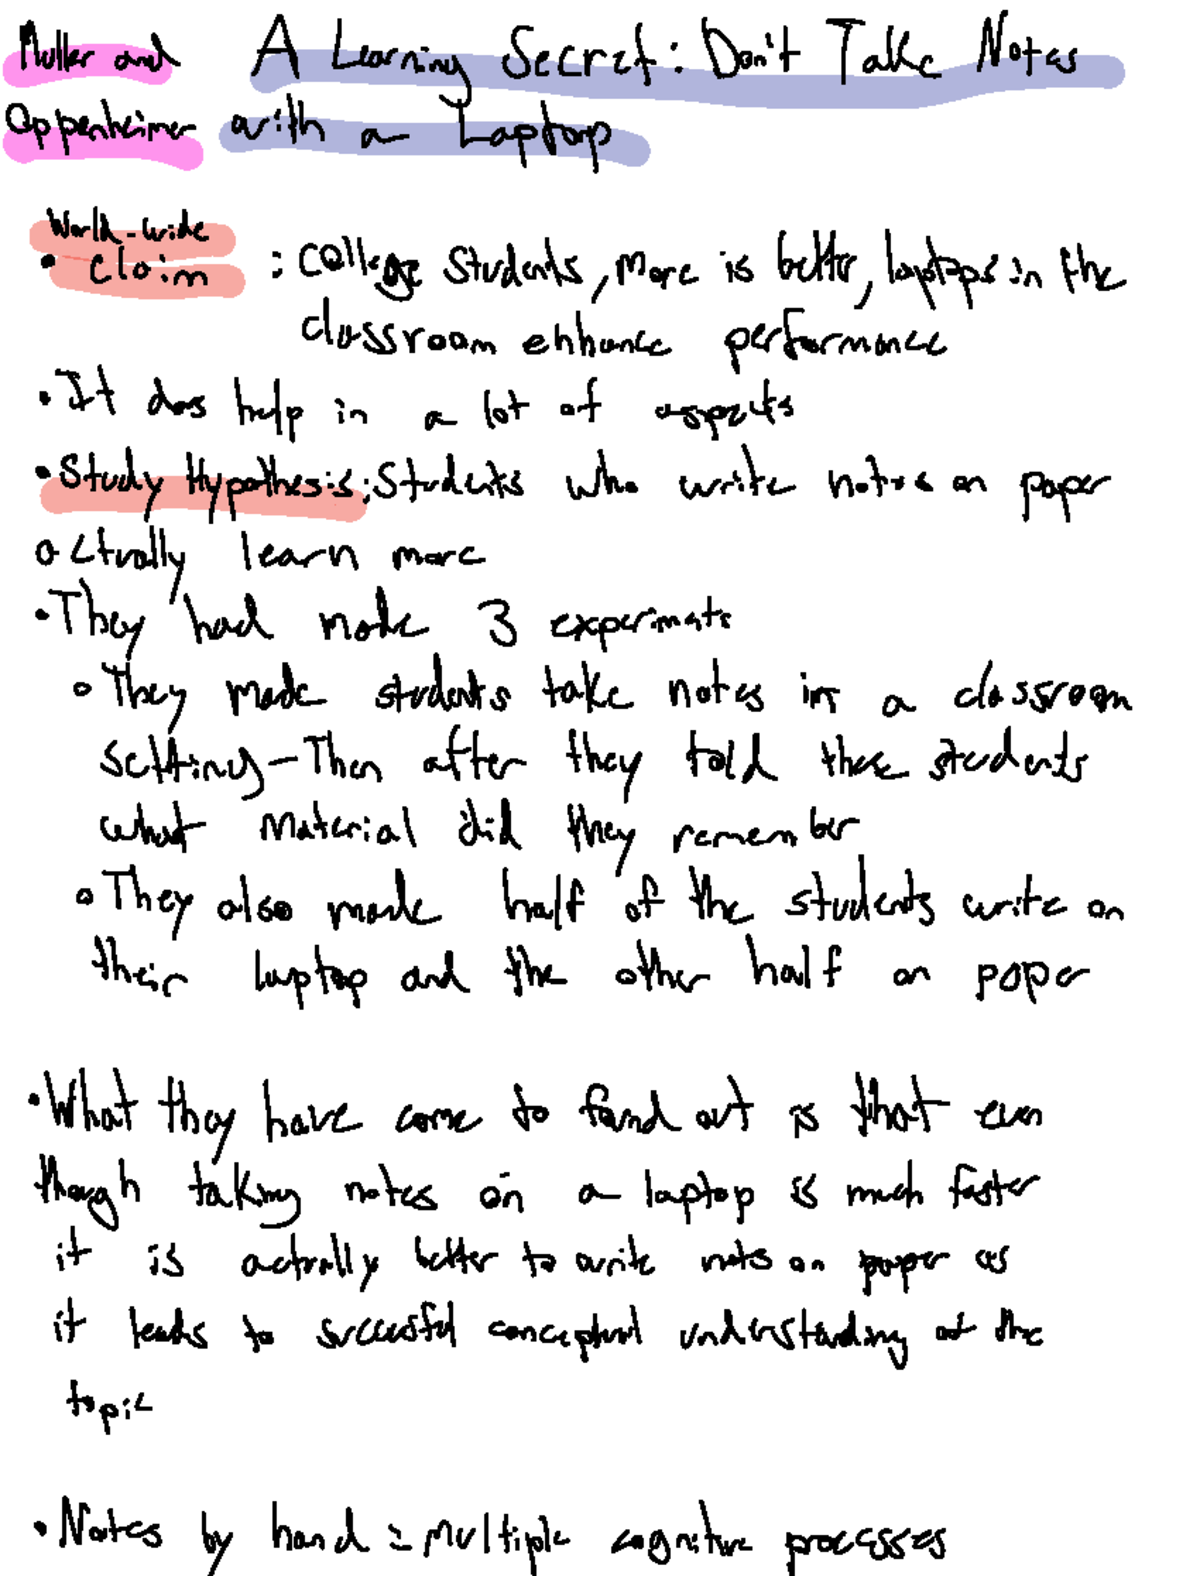 Muller and
Oppenheimer
A Learning Secret: Don't Take Notes
with a Laptop
World-wide
• claim : College Students, more is better, laptops in the
classroom enhance performance
• It does help in a lot of aspects
• Study Hypothesis: Students who write notes on paper
actually learn more
• They had made 3 experiments
◦ They made students take notes in a classroom
setting - Then after they told these students
what material did they remember
◦ They also made half of the students write on
their laptop and the other half on paper
• What they have come to found out is that even
though taking notes on a laptop is much faster
it is actually better to write notes on paper as
it leads to successful conceptual understanding of the
topic
• Notes by hand = multiple cognitive processes